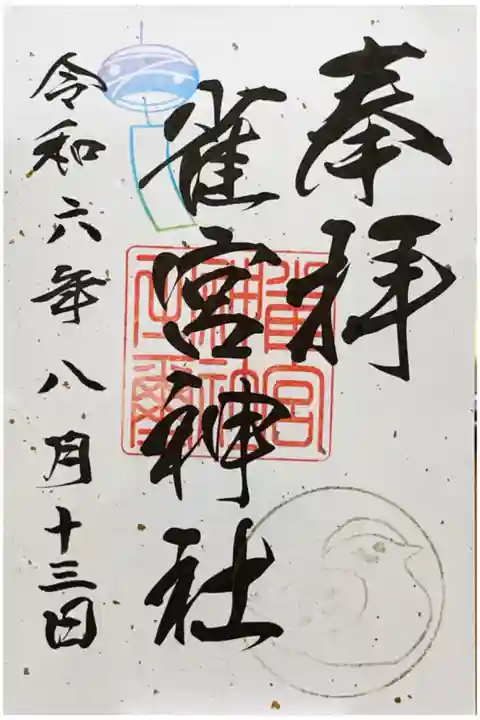 奉拝
雀宮神社
令和六年八月十三日
雀宮
神社